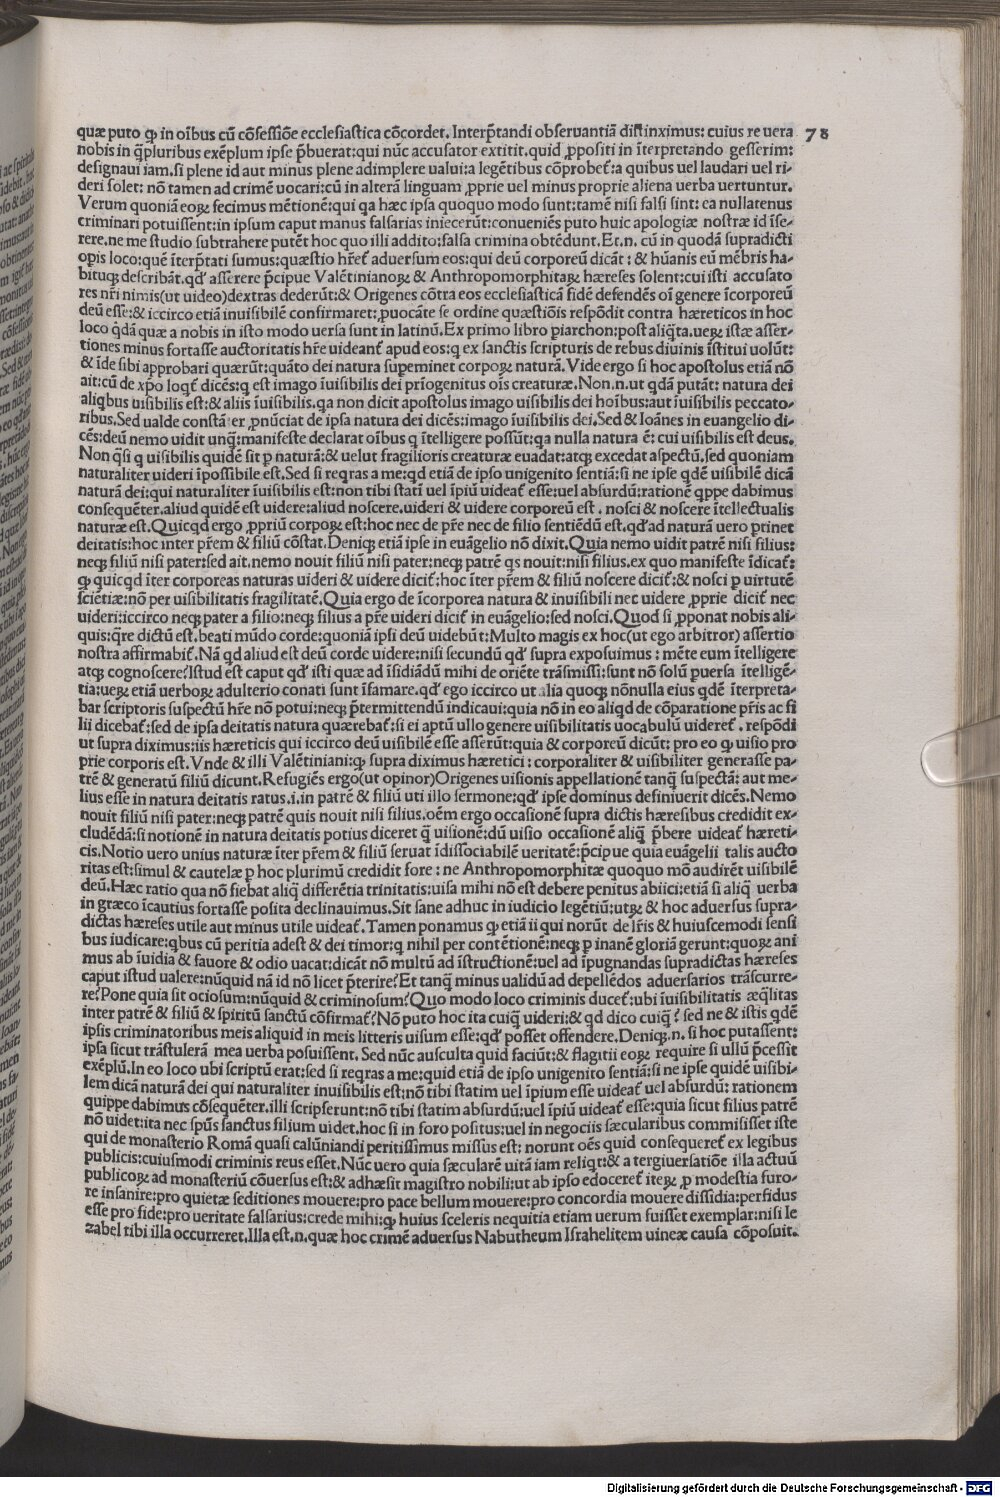 quæ puto ꝙ in oi̅bus cū cōfessiōe ecclesiastica cōcordet. Interp̄tandi obseruantiā distinximus: cuius re uera 78
nobis in q̄pluribus exēplum ipse p̄buerat:qui nūc accusator extitit.quid ꝓpositi in īterpretando gesserim:
designaui iam.si plene id aut minus plene adimplere ualui:a legētibus cōprobet᷑:a quibus uel laudari uel ri-
deri solet: nō tamen ad crimē uocari:cū in alterā linguam ꝓprie uel minus proprie aliena uerba uertuntur.
Verum quoniā eoꝝ fecimus mētionē:qui qa hæc ipsa quoquo modo sunt:tamē nisi falsi sint: ca nullatenus
criminari potuissent:in ipsum caput manus falsarias iniecerūt:conueniēs puto huic apologiæ nostræ id īse-
rere.ne me studio subtrahere putēt hoc quo illi addito:falsa crimina obtēdunt.Et.n. cū in quodā supradicti
opis loco:quē īterp̄tati sumus:quæstio hr̄et᷑ aduersum eos:qui deū corporeū dicāt : & hūanis eū mēbris ha-
bituqꝫ describāt.qd᷑ asserere p̄cipue Valētinianoꝝ & Anthropomorphitaꝝ hæreses solent:cui isti accusato
res nr̄i nimis(ut uideo)dextras dederūt:& Origenes cōtra eos ecclesiasticā fidē defendēs oi̅ genere īcorporeū
deū esse:& iccirco etiā inuisibilē confirmaret:ꝓuocāte se ordine quæstiōis respōdit contra hæreticos in hoc
loco q̄dā quæ a nobis in isto modo uersa sunt in latinū.Ex primo libro piarchon:post aliq̄ta.ueꝝ istæ asser-
tiones minus fortasse auctoritatis hr̄e uideant᷑ apud eos:q ex sanctis scripturis de rebus diuinis īstitui uolūt:
& īde sibi approbari quærūt:quāto dei natura supeminet corpoꝝ naturā.Vide ergo si hoc apostolus etiā nō
ait:cū de xp̄o loqt᷑ dicēs:q est imago īuisibilis dei pr̄iogenitus ois̄ creaturæ.Non.n.ut qdā putāt: natura dei
aliqbus uisibilis est:& aliis īuisibilis.qa non dicit apostolus imago uisibilis dei hoi̅bus:aut īuisibilis peccato-
ribus.Sed ualde constāter ꝓnūciat de ipsa natura dei dicēs:imago īuisibilis dei.Sed & Ioānes in euangelio di-
cēs:deū nemo uidit unq̄:manifeste declarat oi̅bus q ītelligere possūt:qa nulla natura ē: cui uisibilis est deus.
Non q̄si q uisibilis quidē sit p naturā:& uelut fragilioris creaturæ euadat:atqꝫ excedat aspectū,sed quoniam
naturaliter uideri ipossibile est.Sed si reqras a me:qd etiā de ipso unigenito sentiā:si ne ipse qdē uisibilē dicā
naturā dei:qui naturaliter īuisibilis est:non tibi statī uel īpiū uideat᷑ esse:uel absurdū:rationē qppe dabimus
consequēter.aliud quidē est uidere:aliud noscere.uideri & uidere corporeū est . nosci & noscere ītellectualis
naturæ est.Quicqd ergo ꝓpriū corpoꝝ est:hoc nec de pr̄e nec de filio sentiēdū est.qd᷑ ad naturā uero ptinet
deitatis:hoc inter pr̄em & filiū cōstat.Deniqꝫ etiā ipse in euāgelio nō dixit.Quia nemo uidit patrē nisi filius:
neqꝫ filiū nisi pater:sed ait.nemo nouit filiū nisi pater:neqꝫ patrē qs nouit:nisi filius.ex quo manifeste īdicat᷑:
ꝙ quicqd īter corporeas naturas uideri & uidere dicit᷑:hoc īter pr̄em & filiū noscere dicit᷑:& nosci p uirtutē
s̄cietiæ:nō per uisibilitatis fragilitatē.Quia ergo de īcorporea natura & inuisibili nec uidere ꝓprie dicit᷑ nec
uideri:iccirco neqꝫ pater a filio:neqꝫ filius a pr̄e uideri dicit᷑ in euāgelio:sed nosci.Quod si ꝓponat nobis ali-
quis:qr̄e dictū est.beati mūdo corde:quoniā ipsi deū uidebūt:Multo magis ex hoc(ut ego arbitror) assertio
nostra affirmabit᷑.Nā qd aliud est deū corde uidere:nisi secundū qd᷑ supra exposuimus : mēte eum ītelligere
atqꝫ cognoscere?Istud est caput qd᷑ isti quæ ad īsidiādū mihi de oriēte trāsmissi:sunt nō solū puersa ītelligē-
tia:ueꝝ etiā uerboꝝ adulterio conati sunt īfamare.qd᷑ ego iccirco ut alia quoqꝫ nōnulla eius qdē īterpreta-
bar scriptoris suspectū hr̄e nō potui:neqꝫ p̄termittendū indicaui:quia nō in eo aliqd de cōparatione pr̄is ac fi
lii dicebat᷑:sed de ipsa deitatis natura quærebat᷑:si ei aptū ullo genere uisibilitatis uocabulū uideret᷑ . respōdi
ut supra diximus:iis hæreticis qui iccirco deū uisibilē esse asserūt:quia & corporeū dicūt: pro eo ꝙ uisio pro
prie corporis est.Vnde & illi Valētiniani:ꝙ supra diximus hæretici : corporaliter & uisibiliter generasse pa-
trē & generatū filiū dicunt.Refugiēs ergo(ut opinor)Origenes uisionis appellationē tanq̄ suspectā: aut me-
lius esse in natura deitatis ratus.i.in patrē & filiū uti illo sermone:qd᷑ ipse dominus definiuerit dicēs.Nemo
nouit filiū nisi pater:neqꝫ patrē quis nouit nisi filius.oēm ergo occasionē supra dictis hæresibus credidit ex-
cludēdā:si notionē in natura deitatis potius diceret q̄ uisionē:dū uisio occasionē aliq̄ p̄bere uideat᷑ hæreti-
cis.Notio uero unius naturæ īter pr̄em & filiū seruat īdissociabilē ueritatē:p̄cipue quia euāgelii talis aucto
ritas est:simul & cautelæ p hoc plurimū credidit fore : ne Anthropomorphitæ quoquo mō audirēt uisibilē
deū.Hæc ratio qua nō fiebat aliq̄ differētia trinitatis:uisa mihi nō est debere penitus abiici:etiā si aliq̄ uerba
in græco īcautius fortasse posita declinauimus.Sit sane adhuc in iudicio legētiū:utꝝ & hoc aduersus supra-
dictas hæreses utile aut minus utile uideat᷑.Tamen ponamus ꝙ etiā ii qui norūt de lr̄is & huiuscemodi sensi
bus iudicare:qbus cū peritia adest & dei timor:q nihil per contētionē:neqꝫ p inanē gloriā gerunt:quoꝝ ani
mus ab īuidia & fauore & odio uacat:dicāt nō multū ad īstructionē:uel ad īpugnandas supradictas hæreses
caput istud ualere:nūquid nā id nō licet p̄terire?Et tanq̄ minus ualidū ad depellēdos aduersarios trāscurre-
re?Pone quia sit ociosum:nūquid & criminosum?Quo modo loco criminis ducet᷑:ubi īuisibilitatis æq̄litas
inter patrē & filiū & spiritū sanctū cōfirmat᷑?Nō puto hoc ita cuiq̄ uideri:& qd dico cuiq̄ ? sed ne & istis qdē
ipsis criminatoribus meis aliquid in meis litteris uisum esse:qd᷑ posset offendere.Deniqꝫ.n. si hoc putassent:
ipsa sicut trāstulerā mea uerba posuissent. Sed nūc ausculta quid faciūt:& flagitii eoꝝ require si ullū p̄cessit
exēplū.In eo loco ubi scriptū erat:sed si reqras a me:quid etiā de ipso unigenito sentiā:si ne ipse quidē uisibi-
lem dicā naturā dei qui naturaliter inuisibilis est:nō tibi statim uel īpium esse uideat᷑ uel absurdū: rationem
quippe dabimus cōsequēter.illi scripserunt:nō tibi statim absurdū:uel īpiū uideat᷑ esse:quia sicut filius patrē
nō uidet:ita nec spūs sanctus filium uidet.hoc si in foro positus:uel in negociis sæcularibus commisisset iste
qui de monasterio Romā quasi calūniandi peritissimus missus est: norunt oēs quid consequeret᷑ ex legibus
publicis:cuiusmodi criminis reus esset.Nūc uero quia sæcularē uitā iam reliqt:& a tergiuersatiōe illa actuū
publicoꝝ ad monasteriū cōuersus est:& adhæsit magistro nobili:ut ab ipso edoceret᷑ iteꝝ p modestia furo-
re insanire:pro quietæ seditiones mouere:pro pace bellum mouere:pro concordia mouere dissidia:perfidus
esse pro fide:pro ueritate falsarius:crede mihi:ꝙ huius sceleris nequitia etiam uerum fuisset exemplar:nisi Ie
zabel tibi illa occurreret.Illa est.n.quæ hoc crimē aduersus Nabutheum Israhelitem uineæ causa cōposuit.
Digitalisierung gefördert durch die Deutsche Forschungsgemeinschaft - DFG